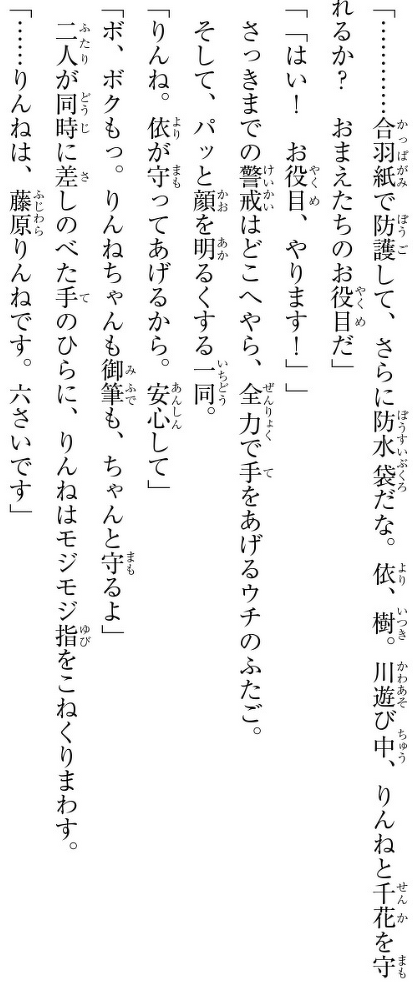 「…………合羽紙で防護して、さらに防水袋だな。依、樹。川遊び中、りんねと千花を守
れるか？　おまえたちのお役目だ」
「「はい！　お役目、やります！」」
さっきまでの警戒はどこへやら、全力で手をあげるウチのふたご。
そして、パッと顔を明るくする一同。
「りんね。依が守ってあげるから。安心して」
「ボ、ボクもっ。りんねちゃんも御筆も、ちゃんと守るよ」
二人が同時に差しのべた手のひらに、りんねはモジモジ指をこねくりまわす。
「……りんねは、藤原りんねです。六さいです」